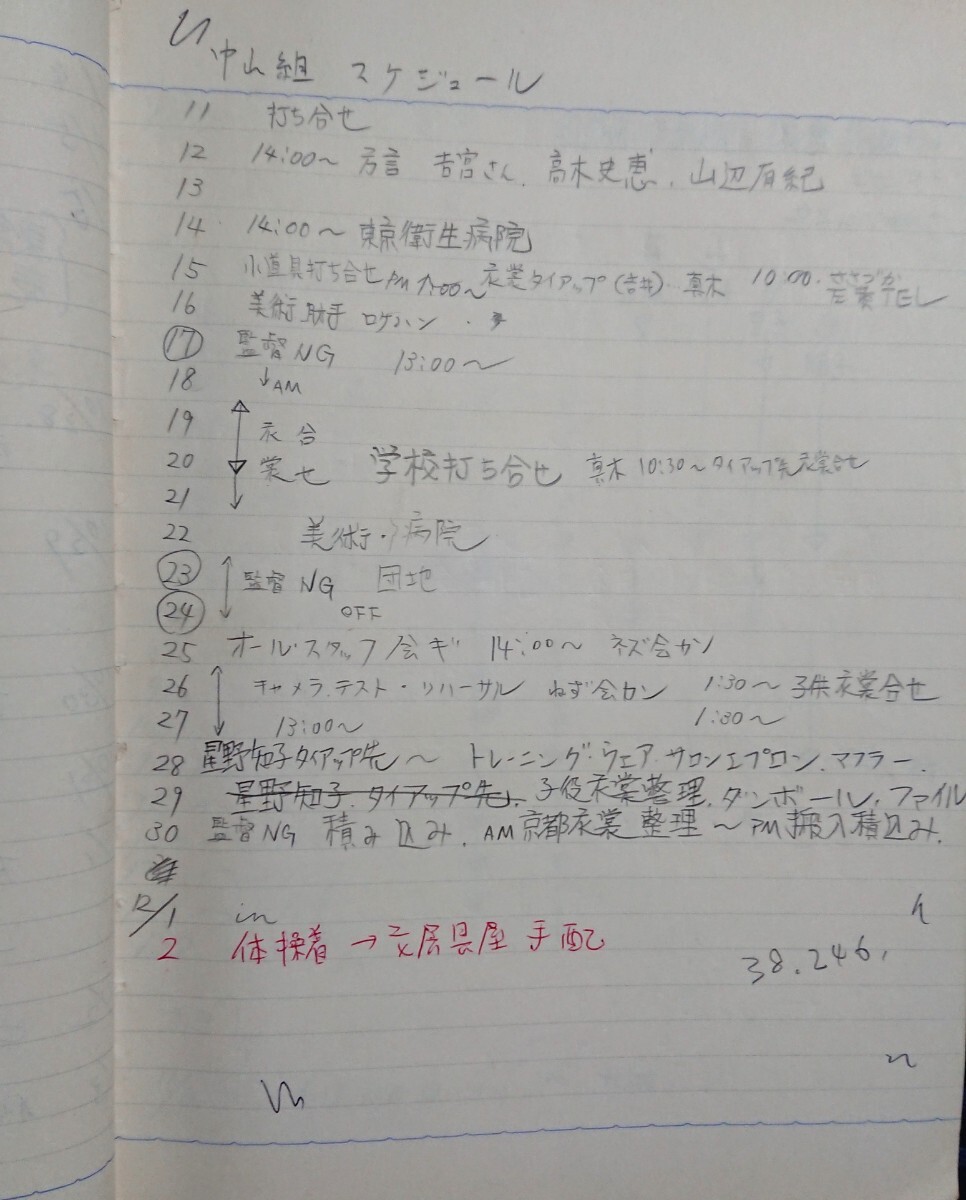 中山組 スケジュール
11 打ち合せ
12 14:00〜 方言 吉宮さん、高木史恵、山辺有紀
13
14 14:00〜 東京衛生病院
15 小道具打ち合せ PM 〜 衣裳タイアップ(吉井)、真木 10:00.
16 美術助手 ロケハン
17 監督NG 13:00〜
18 ↓AM
19 衣 合
20 裳 せ 学校打ち合せ 真木 10:30〜タイアップ先衣裳合せ
21
22 美術・病院
23 監督NG 団地
24 OFF
25 オール・スタッフ会ギ 14:00〜 ネズ会カン
26 キャメラ.テスト・リハーサル ねず会カン 1:30〜 子供衣裳合せ
27 13:00〜 1:30〜
28 星野知子タイアップ先〜 トレーニング・ウェア.サロンエプロン.マフラー.
29 星野知子.タイアップ先. 子役衣裳整理.ダンボール.ファイル
30 監督NG 積み込み.AM京都衣裳整理〜PM搬入積込み.
12/1 in
2 体操着→文房具屋 手配
38.246.